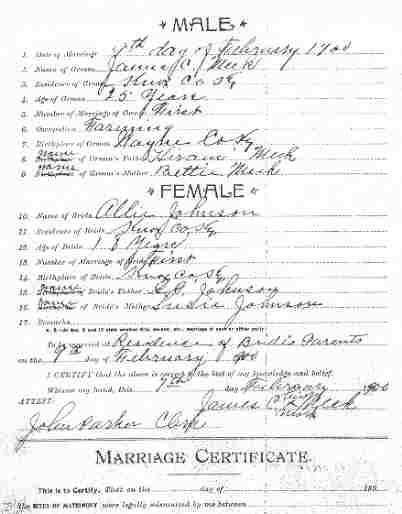 MALE
1. Date of Marriage 9th day of February 1900
2. Name of Groom James C. Meek
3. Residence of Groom Knox Co Ky
4. Age of Groom 25 Years
5. Number of Marriage of Groom First
6. Occupation Farming
7. Birthplace of Groom Wayne Co Ky
8. Name of Groom's Father Hiram Meek
9. Name of Groom's Mother Bettie Meek
FEMALE
10. Name of Bride Allie Johnson
11. Residence of Bride Knox Co, Ky
12. Age of Bride
13. Number of Marriage of Bride First
14. Birthplace of Bride Knox Co, Ky
15. of Bride's Father Johnson
16. of Bride's Mother Johnson
17. Remarks
To be married at Residence of Bride's Parents
on the 9th day of February 1900
I CERTIFY that the above is correct to the best of my knowledge and belief.
Witness my hand, this 7th day February 1900
ATTEST: James C. Meek
mark
John Parker Clerk
MARRIAGE CERTIFICATE.
This is to Certify, That on the day of 189
the RITES OF MATRIMONY were legally solemnized by me between